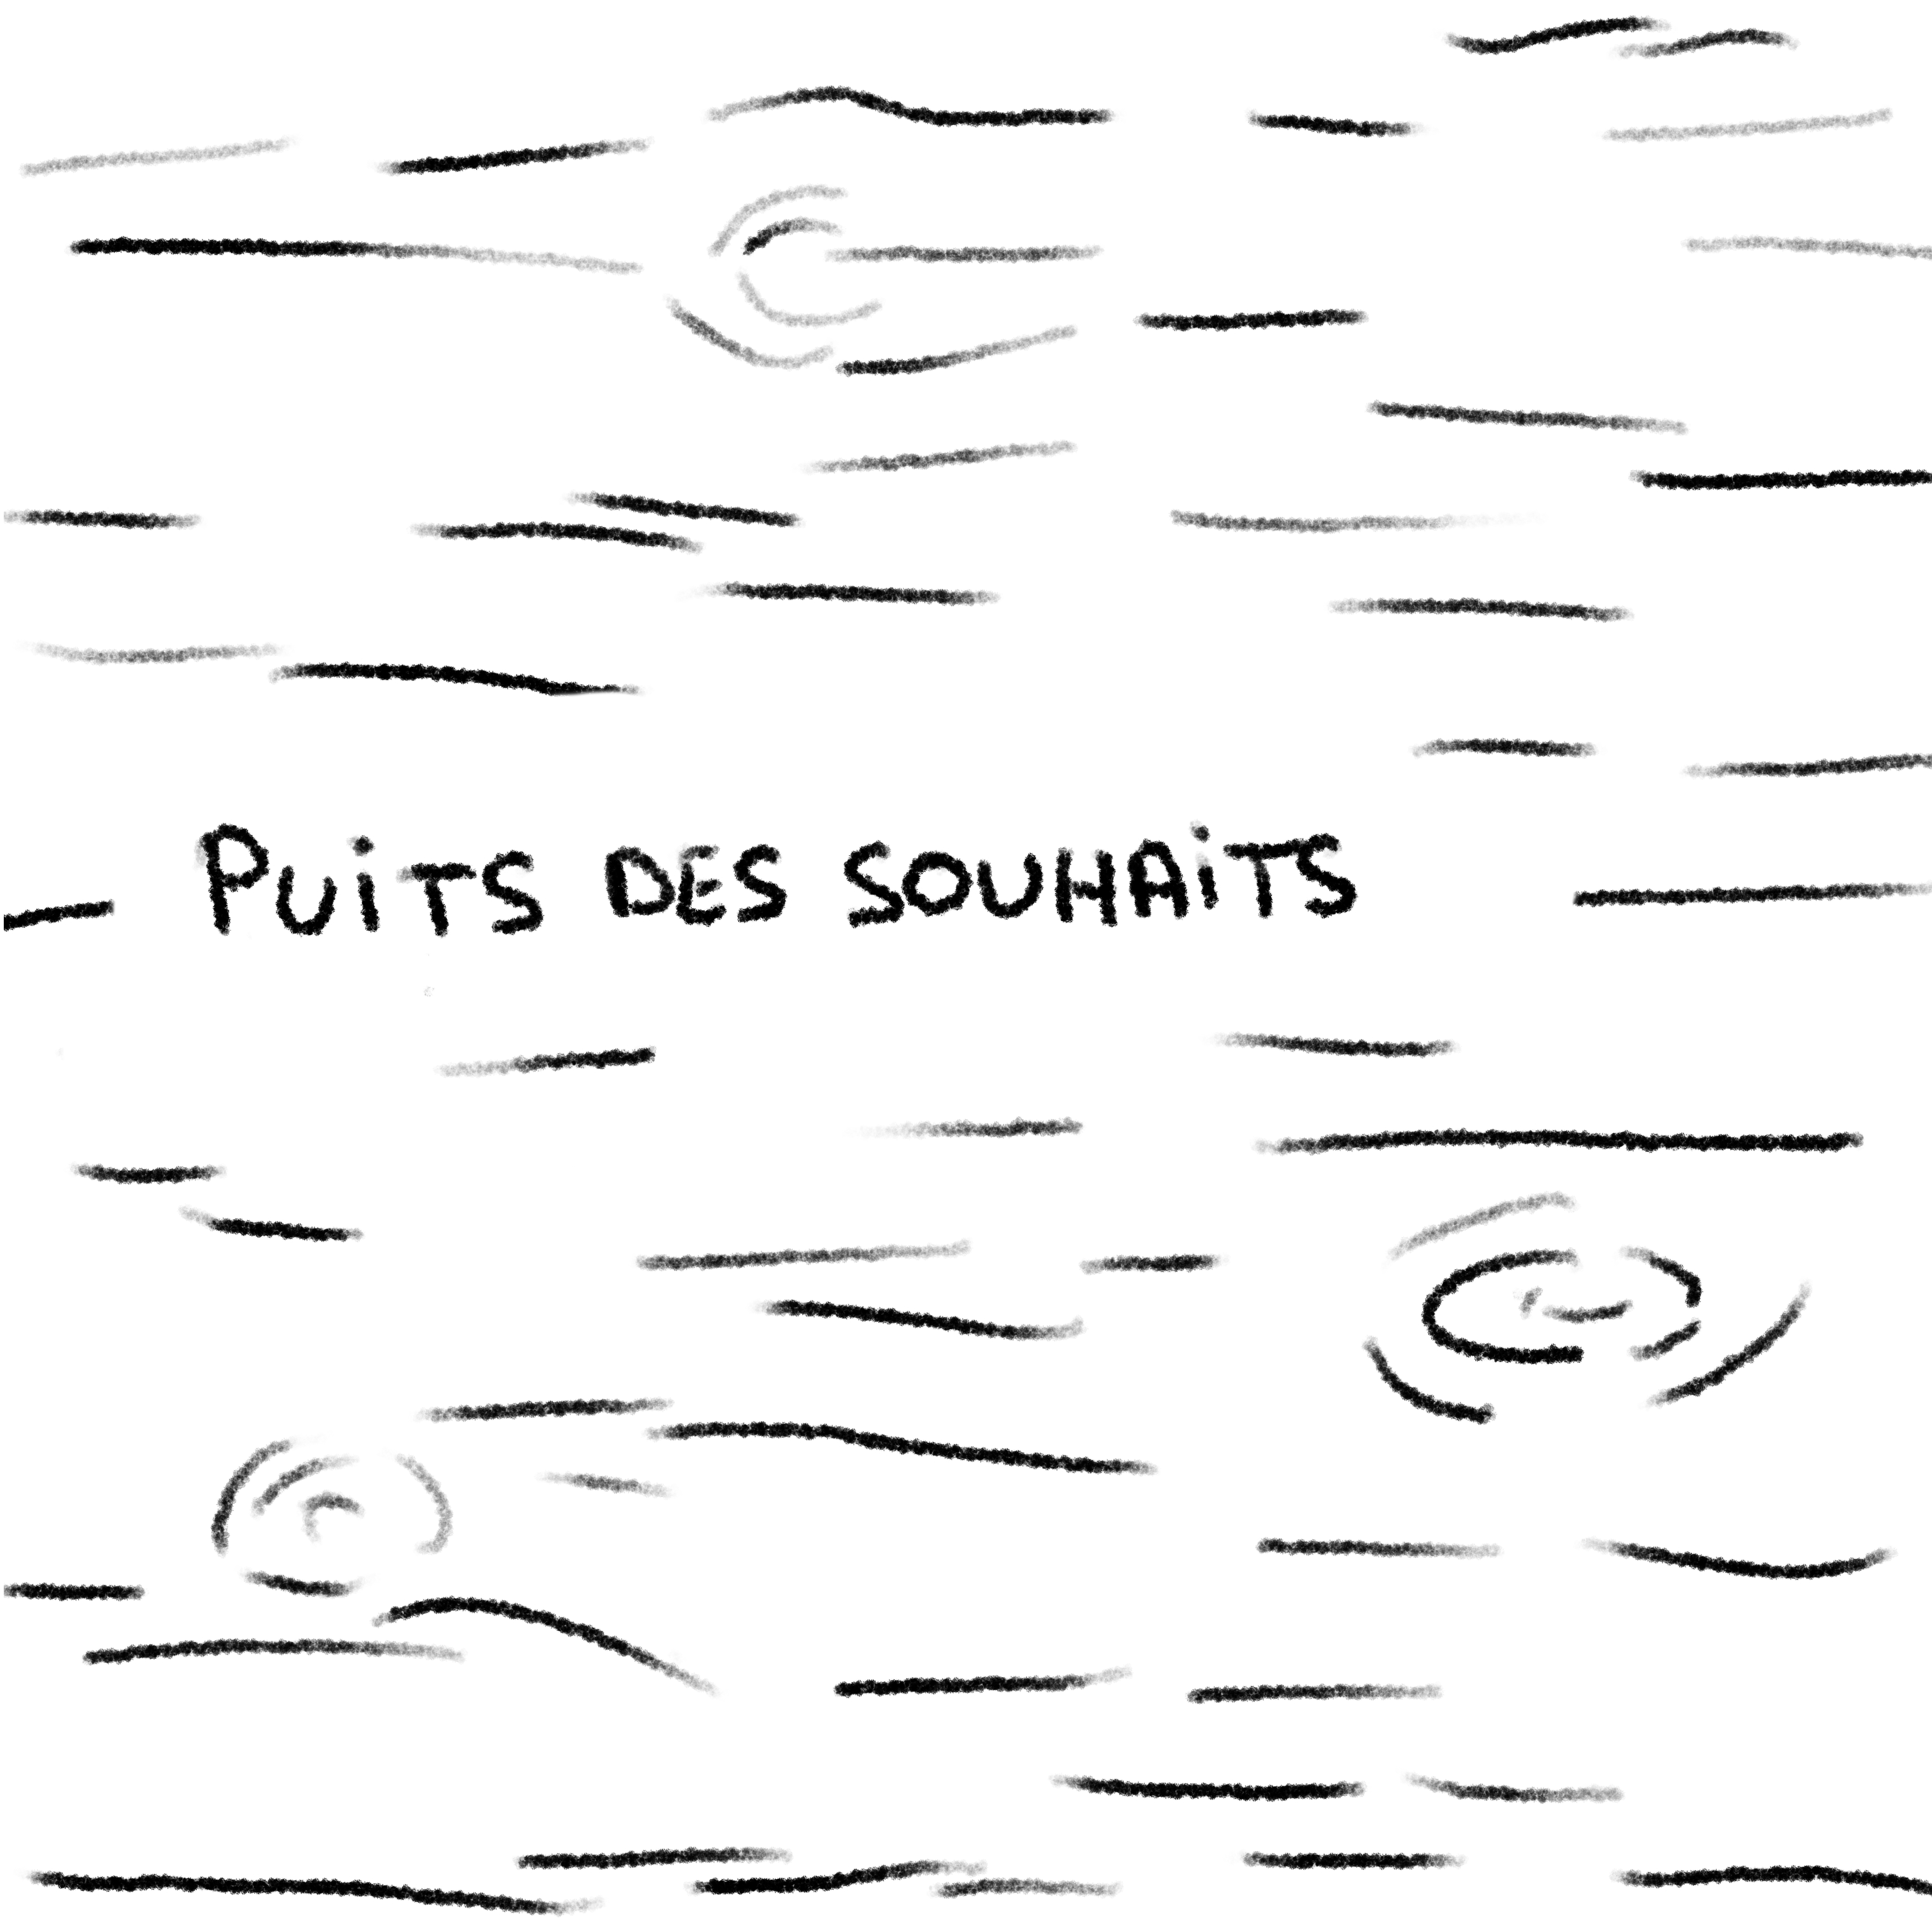 PUiTS DES SOUHAiTS